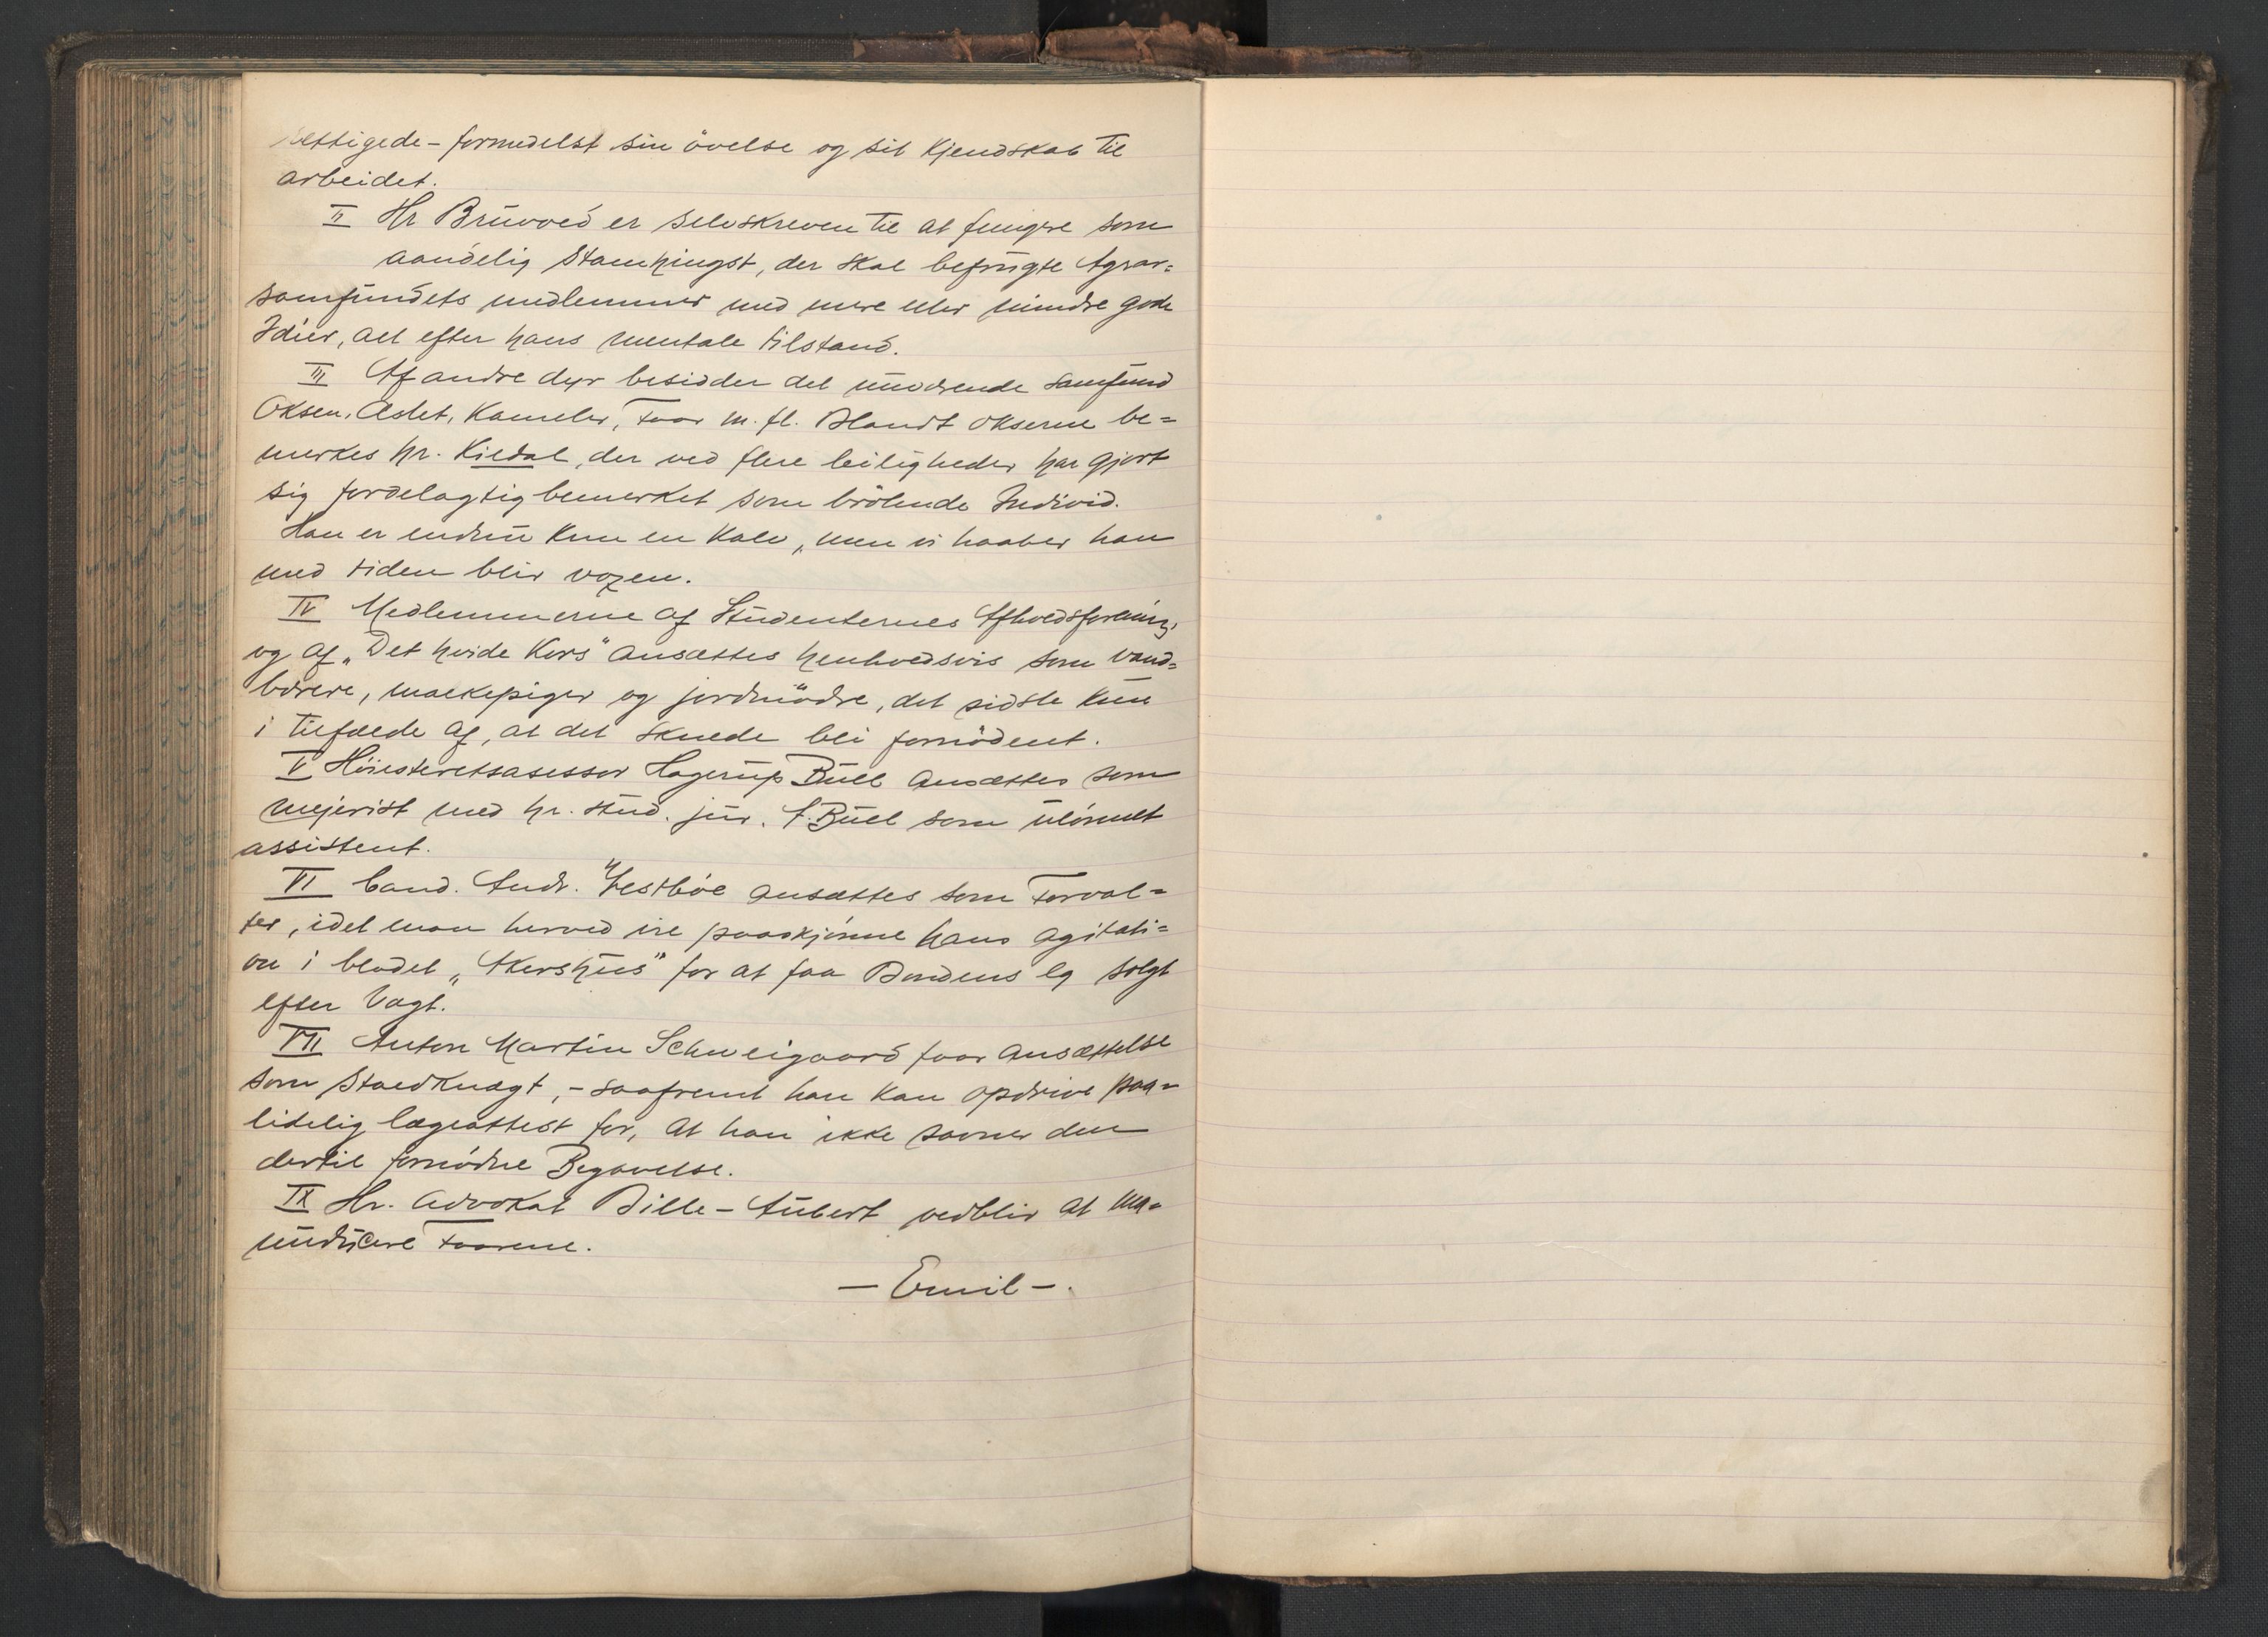 rettigede - formedelst sin övelse og sit Kjendskab til
arbeidet.
II Hr Bruvold er selvskreven til at fungere som
aandelig Stamhingst, der skal befrugte Agrar=
samfundets medlemmer med mere eller mindre gode
Idéer, alt efter hans mentale tilstand.
III Af andre dyr besidder det undrende Samfund
Oksen, Æslet, Kameler, Faar m. fl. Blandt okserne be=
merkes hr. Kildal, der ved flere leiligheder har gjort
sig fordelagtig bemerket som brölende Individ.
Han er endnu kun en Kalv, men vi haaber han
med tiden blir voxen.
IV Medlemmerne af Studenternes Afholdsforening
og af „Det hvide Kors" ansættes henholdsvis som vand=
bærere, malkepiger og jordmödre, det sidste kun
i tilfælde af, at det skulde bli fornödent.
V Höiesteretsasessor Hagerup Bull ansættes som
mejerist med hr. stud. jur. A. Bull som ulönnet
assistent.
VI Cand. Andr. Vestböe ansættes som Forval=
ter, idet man herved vil paaskjönne hans agitati=
on i bladet „Akershus" for at faa Bondens æg solgt
efter Vægt.
VII Anton Martin Schweigaard faar Ansættelse
som Staldknægt, - saafremt han kan opdrive paa=
lidelig lægeattest for, at han ikke savner den
dertil fornödne Begavelse.
IX Hr. Advokat Bille-Aubert vedblir at ma=
nuducere Faarene.
- Emil -.